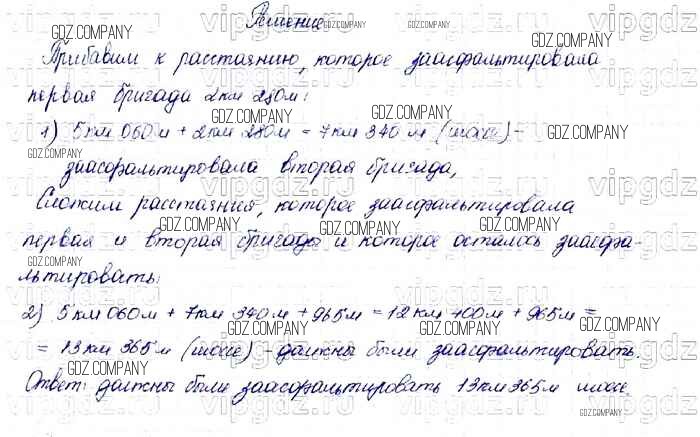 Решение
Прибавим к расстоянию, которое заасфальтировала
первая бригада 2км 280м:
1) 5км 060м + 2км 280м = 7км 340 м (шоссе) -
заасфальтировала вторая бригада,
Сложим расстояния, которое заасфальтировала
первая и вторая бригады и которое осталось заасфа-
льтировать:
2) 5км 060м + 7км 340м + 965м = 12 км 400м + 965м =
= 13км 365м (шоссе) - должны были заасфальтировать.
Ответ: должны были заасфальтировать 13км 365м шоссе.
GDZ.COMPANY
vipgdz.ru